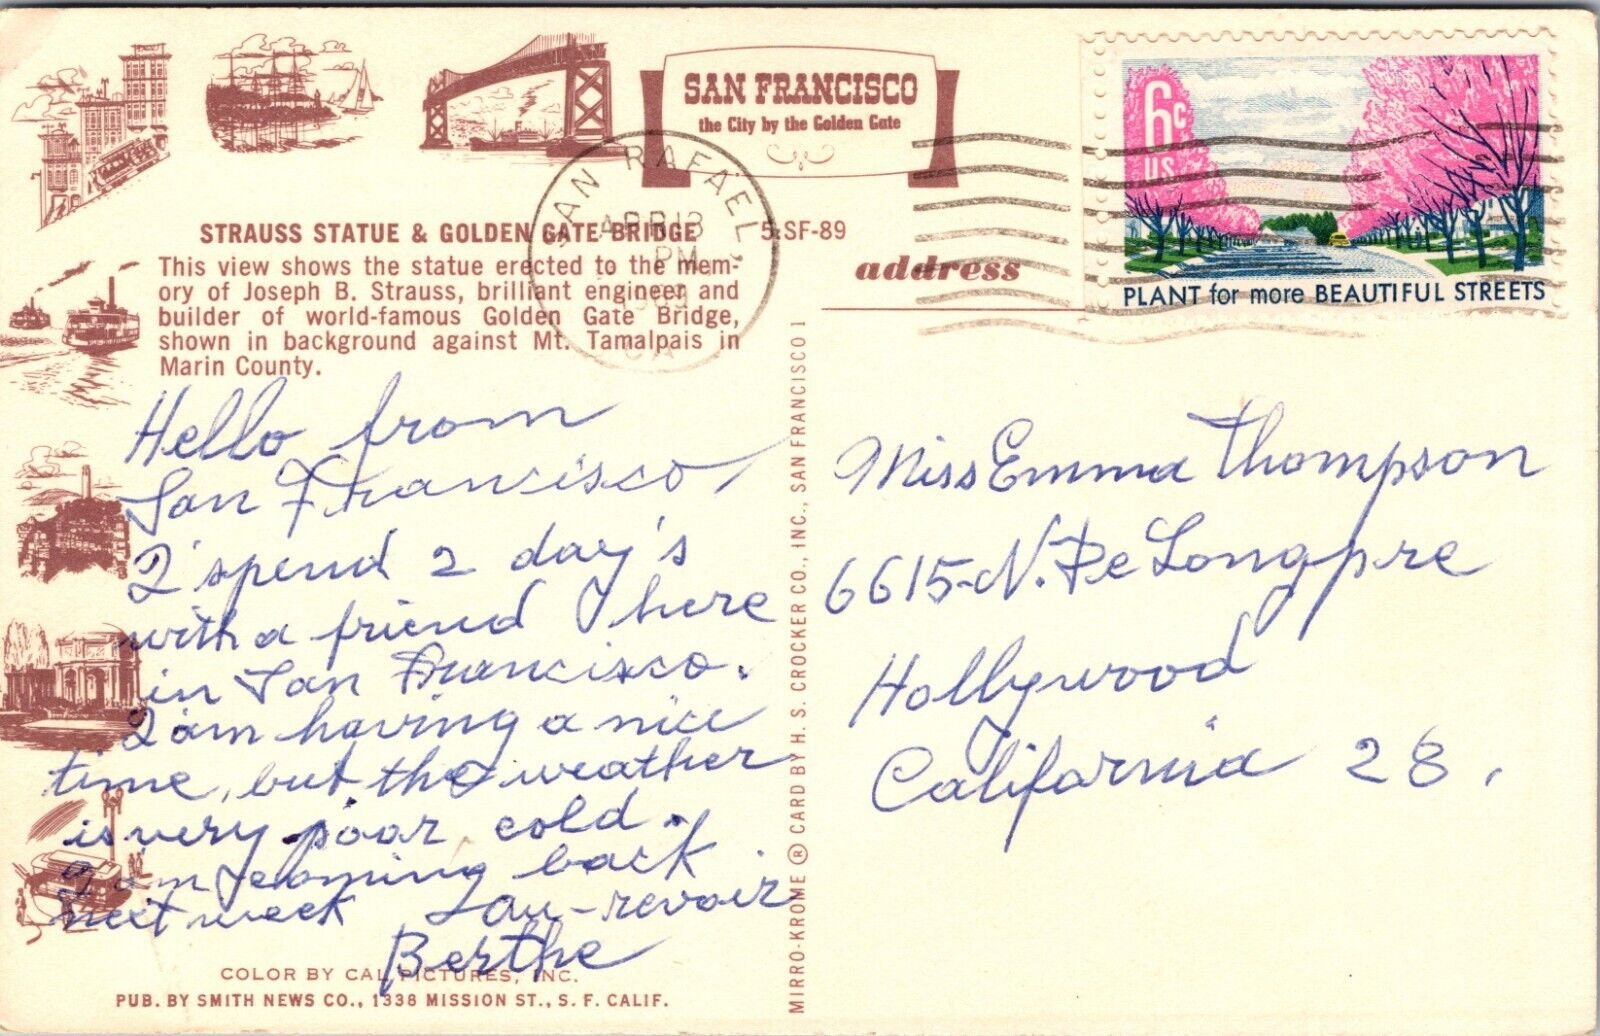 SAN FRANCISCO
the City by the Golden Gate
6c
US
PLANT for more BEAUTIFUL STREETS
SAN RAFAEL
APR 13
PM
CA
STRAUSS STATUE & GOLDEN GATE BRIDGE
5:SF-89
This view shows the statue erected to the mem-
ory of Joseph B. Strauss, brilliant engineer and
builder of world-famous Golden Gate Bridge,
shown in background against Mt. Tamalpais in
Marin County.
address
Hello from
San Francisco,
I spend 2 day's
with a friend here
in San Francisco.
I am having a nice
time, but the weather
is very poor, cold.
I am coming back
next week
au-revoir
Berthe
Miss Emma Thompson
6615-N. De Longpre
Hollywood
California 28.
MIRRO-KROME ® CARD BY H. S. CROCKER CO., INC., SAN FRANCISCO 1
COLOR BY CAL PICTURES, INC.
PUB. BY SMITH NEWS CO., 1338 MISSION ST., S. F. CALIF.